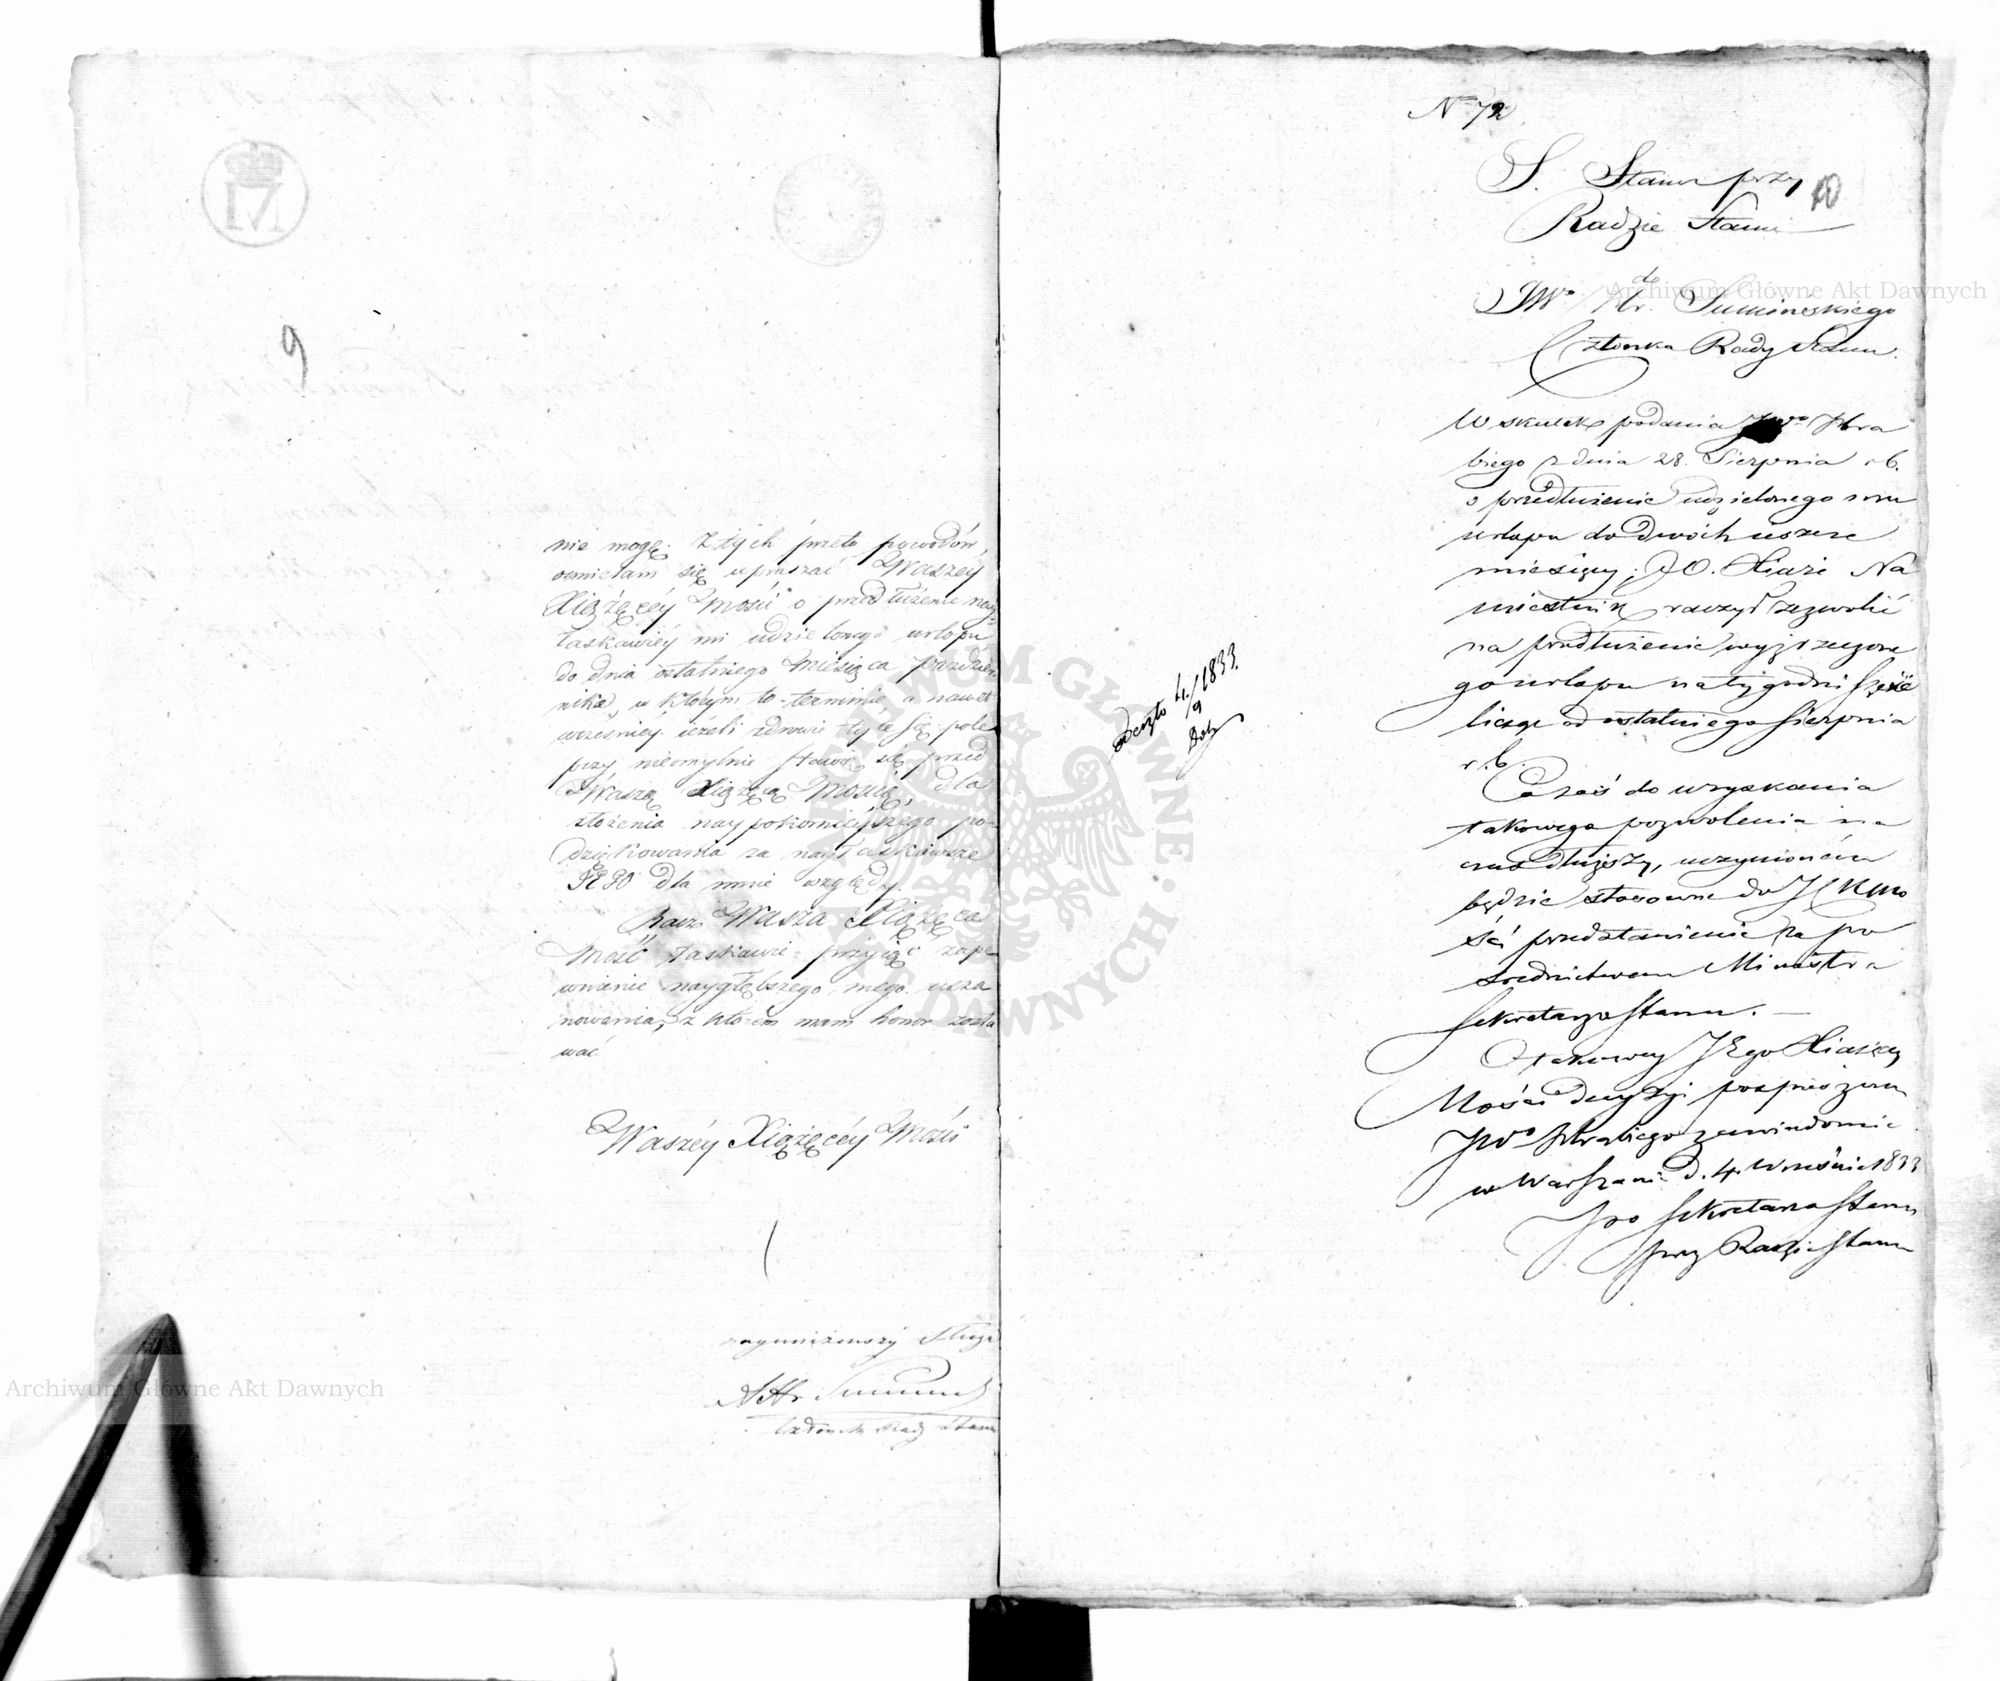 9
nie mogę. Z tych przeto powodów,
osmielam się upraszać Waszéy
Xiążęcéy Mości o przedłużenie nay=
łaskawiéy mi udzielonego urlopu
do dnia ostatniego Miesiąca Paździer
nika, w którym to terminie, a nawet
wcześniéy ieżeli zdrowie tyle się pole
przy nieomylnie stawię się przed
Waszą Xiążęcą Mością, dla
złożenia naypokornieyszego po=
dziękowania za nayłaskawsze
JEGO dla mnie względy.
Racz Wasza Xiążęca
Mość łaskawie przyjąć zape
wnienie naygłębszego mego usza
nowania, z którem mam honor zosta
wać
Waszéy Xiążęcéy Mości
nayuniżeńszy Sługa
Członek Rady Stanu
N 72
10
S. Stanu przy
Radzie Stanu
do
JWo Hr. Sumińskiego
Członka Rady Stanu.
W skutek podania JWo Hra
biego z dnia 28. Sierpnia r b.
o przedłużenie udzielonego mu
urlopu do dwóch ieszcze
miesięcy; JO. Xiąże Na
miestnik raczył zezwolić
na przedłużenie wyż rzeczone
go urlopu na tygodni sześć
licząc od ostatniego Sierpnia
r. b.
Co zaś do uzyskania
takowego pozwolenia na
czas dłuższy, uczynioném
będzie stosowne do JCKMo
ści przedstawienie za po
średnictwem Ministra
Sekretarza Stanu. —
O takowey JEgo Xiążęcy
Mości decyzyi pospieszam
JWo Hrabiego zawiadomić
w Warszawie d. 4 Września 1833
Sekretarza Stanu
przy Radzie Stanu
odeszło 4/9 1833.
Archiwum Główne Akt Dawnych
Archiwum Główne Akt Dawnych
ARCHIWUM GŁÓWNE AKT DAWNYCH